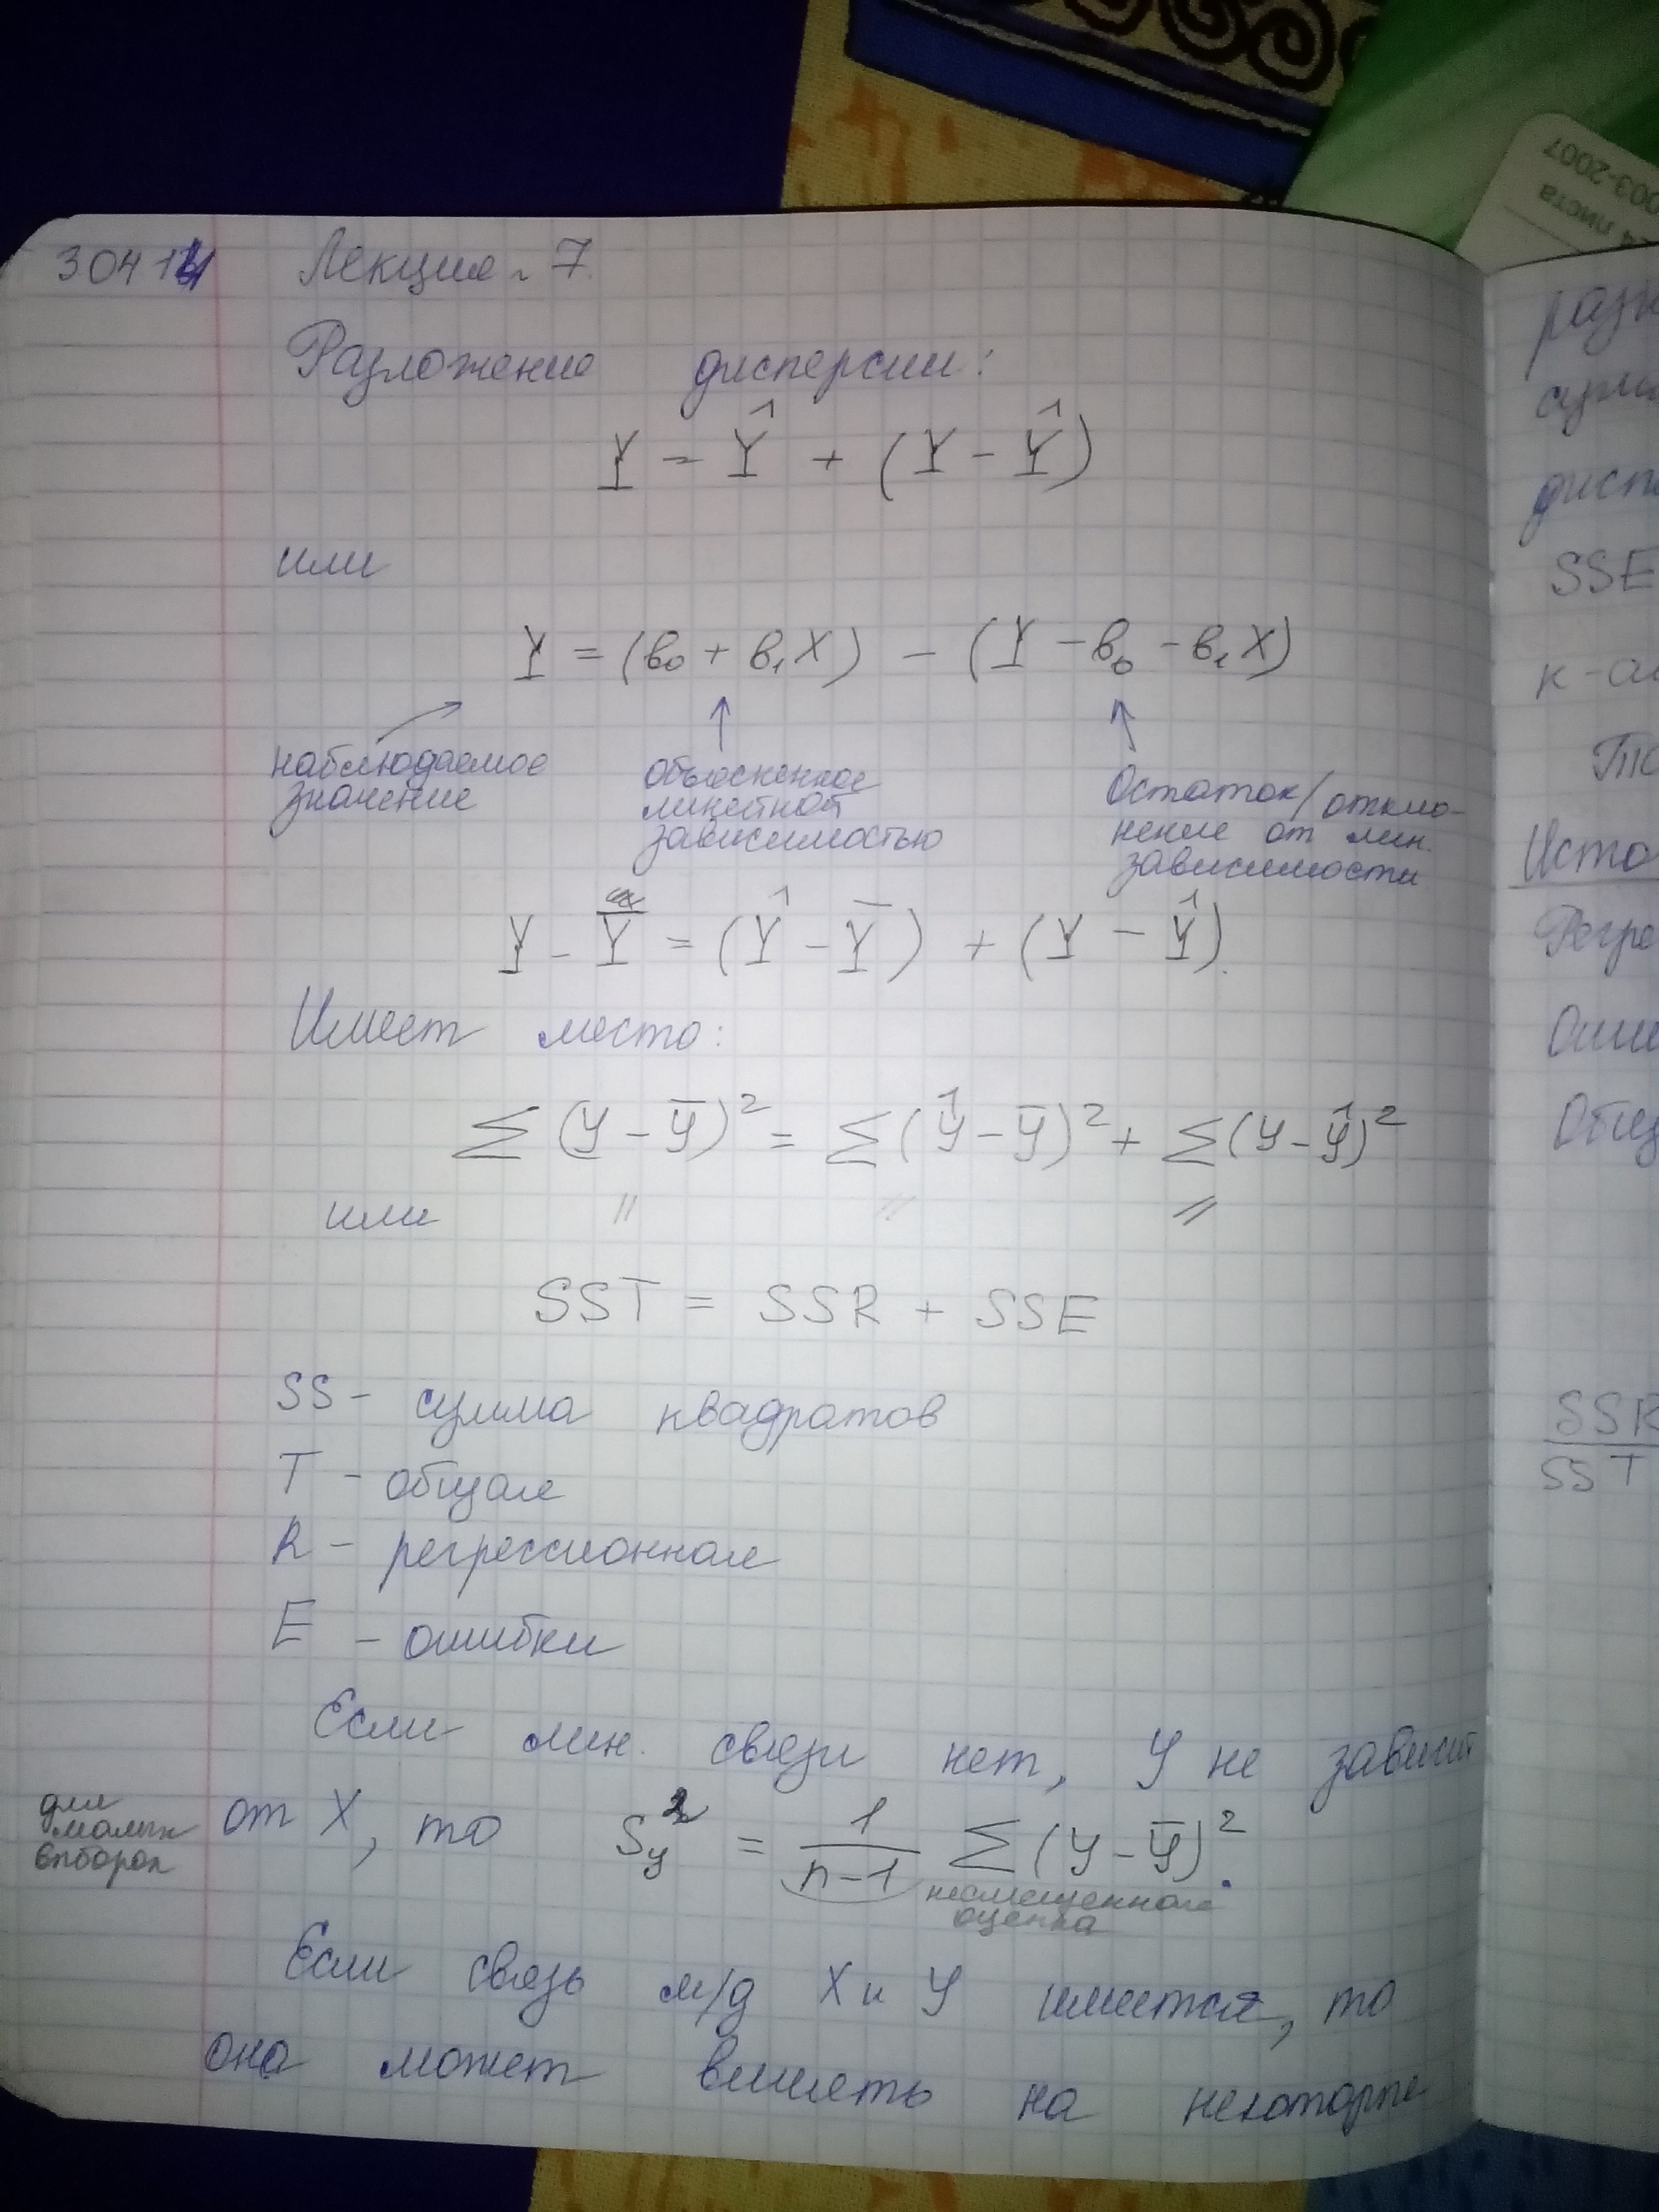 Лекция 7
Разложение дисперсии:
Y = Ŷ + (Y - Ŷ)
или
Y = (b₀ + b₁X) - (Y - b₀ - b₁X)
наблюдаемое
значение
объясненное
линейной
зависимостью
Остаток/откло-
нение от лин.
зависимости
Y - Y̅ = (Ŷ - Y̅) + (Y - Ŷ).
Имеет место:
∑(y - y̅)² = ∑(ŷ - y̅)² + ∑(y - ŷ)²
или // // //
SST = SSR + SSE
SS - сумма квадратов
T - общая
R - регрессионная
E - ошибки
Если лин. связи нет, У не зависит
для
малых
выборок
от X, то Sy² = 1/(n-1) ∑(y - y̅)².
несмещенная
оценка
Если связь м/д X и У имеется, то
она может влиять на некоторые
SSE
Исто
Регре
Оши
Общ
SSR
SST
4 листа
003-2007